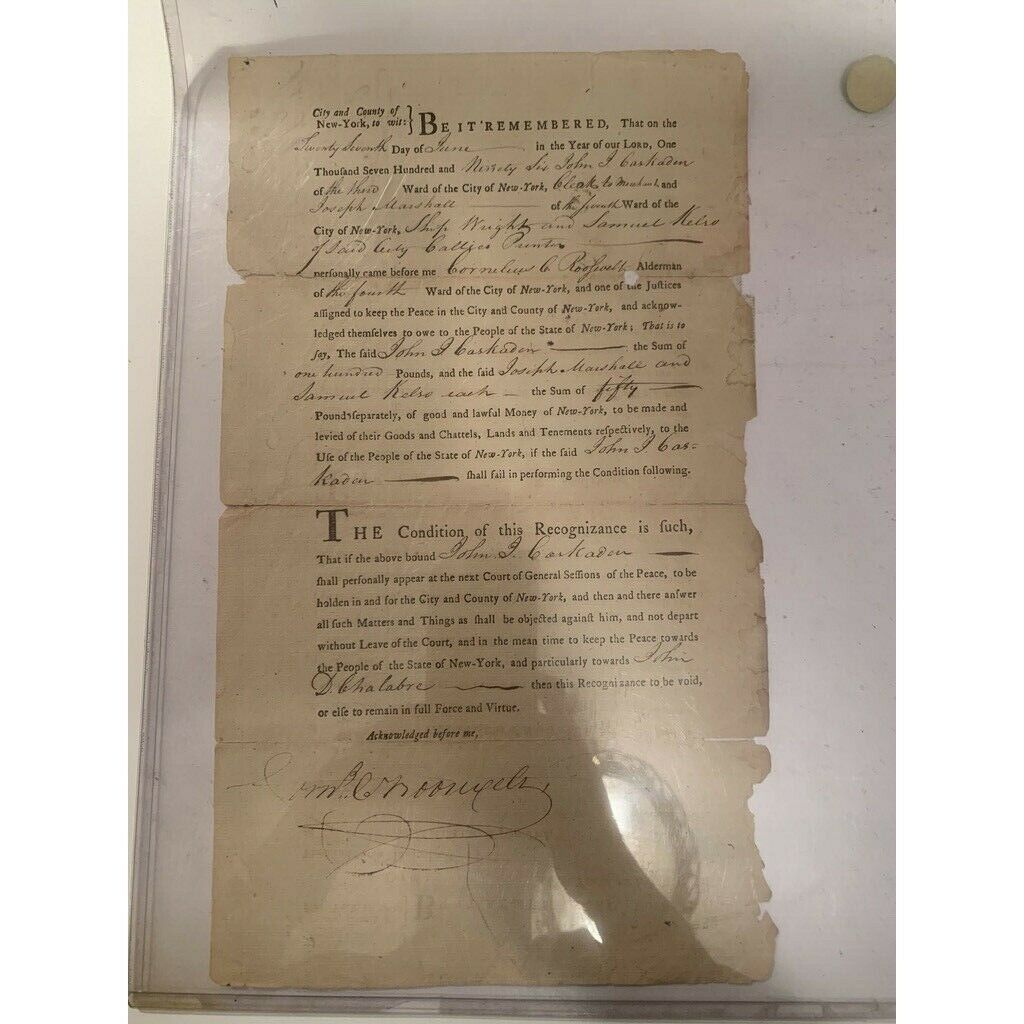 City and County of
New-York, to wit: } BE IT REMEMBERED, That on the
Twenty Seventh Day of June in the Year of our LORD, One
Thouſand Seven Hundred and Ninety Six John J Carkaden
of the third Ward of the City of New-York, Cleak to Merchant and
Joseph Marshall of the ſeventh Ward of the
City of New-York, Ship Wright and Samuel Kelso
of Said City Callico Printer
perſonally came before me Cornelius C. Rooſevelt Alderman
of the fourth Ward of the City of New-York, and one of the Juſtices
aſſigned to keep the Peace in the City and County of New-York, and acknow-
ledged themſelves to owe to the People of the State of New-York; That is to
ſay, The ſaid John J Carkaden the Sum of
one hundred Pounds, and the ſaid Joseph Marshall and
Samuel Kelso each the Sum of fifty
Pounds ſeparately, of good and lawful Money of New-York, to be made and
levied of their Goods and Chattels, Lands and Tenements reſpectively, to the
Uſe of the People of the State of New-York, if the ſaid John J. Car-
kaden ſhall fail in performing the Condition following.
THE Condition of this Recognizance is ſuch,
That if the above bound John J. Carkaden
ſhall perſonally appear at the next Court of General Seſſions of the Peace, to be
holden in and for the City and County of New-York, and then and there anſwer
all ſuch Matters and Things as ſhall be objected againſt him, and not depart
without Leave of the Court, and in the mean time to keep the Peace towards
the People of the State of New-York, and particularly towards John
D. Chalabre then this Recognizance to be void,
or elſe to remain in full Force and Virtue.
Acknowledged before me,
Corn.s C Roosevelt